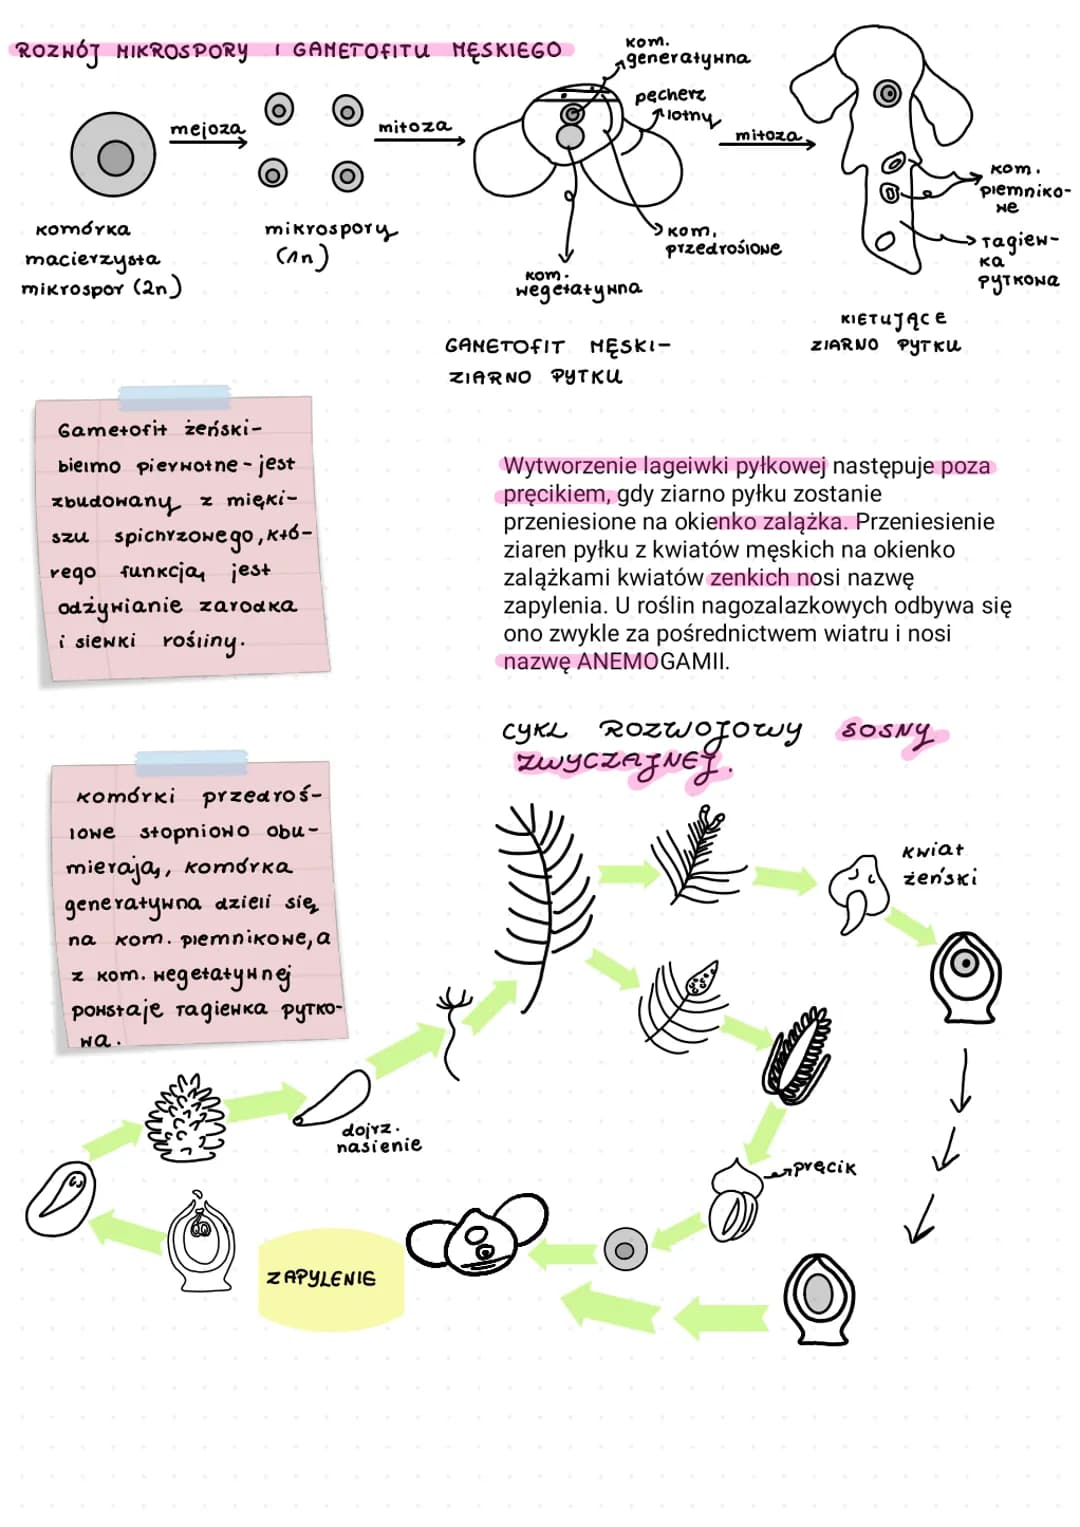 ROZWÓJ MIKROSPORY I GAMETOFITU MĘSKIEGO
kom.
generatywna
pęcherz
lotny
mejoza
mitoza
mitoza
komórka
macierzysta
mikrospor (2n)
mikrospory
(1n)
kom.
przedroślowe
kom.
wegetatywna
kom.
plemniko-
we
łagiew-
ka
pyłkowa
GAMETOFIT MĘSKI-
ZIARNO PYŁKU
KIEŁUJĄCE
ZIARNO PYŁKU
Gametofit żeński-
bielmo pierwotne-jest
zbudowany z mięki-
szu spichrzowego, któ-
rego funkcją jest
odżywianie zarodka
i siewki rośliny.
Wytworzenie lageiwki pyłkowej następuje poza
pręcikiem, gdy ziarno pyłku zostanie
przeniesione na okienko zalążka. Przeniesienie
ziaren pyłku z kwiatów męskich na okienko
zalążkami kwiatów zenkich nosi nazwę
zapylenia. U roślin nagozalazkowych odbywa się
ono zwykle za pośrednictwem wiatru i nosi
nazwę ANEMOGAMII.
CYKL ROZWOJOWY SOSNY
ZWYCZAJNEJ.
komórki przedroś-
lowe stopniowo obu-
mierają, komórka
generatywna dzieli się
na kom. plemnikowe, a
z kom. wegetatywnej
powstaje łagiewka pyłko-
wa.
kwiat
żeński
dojrz.
nasienie
pręcik
ZAPYLENIE